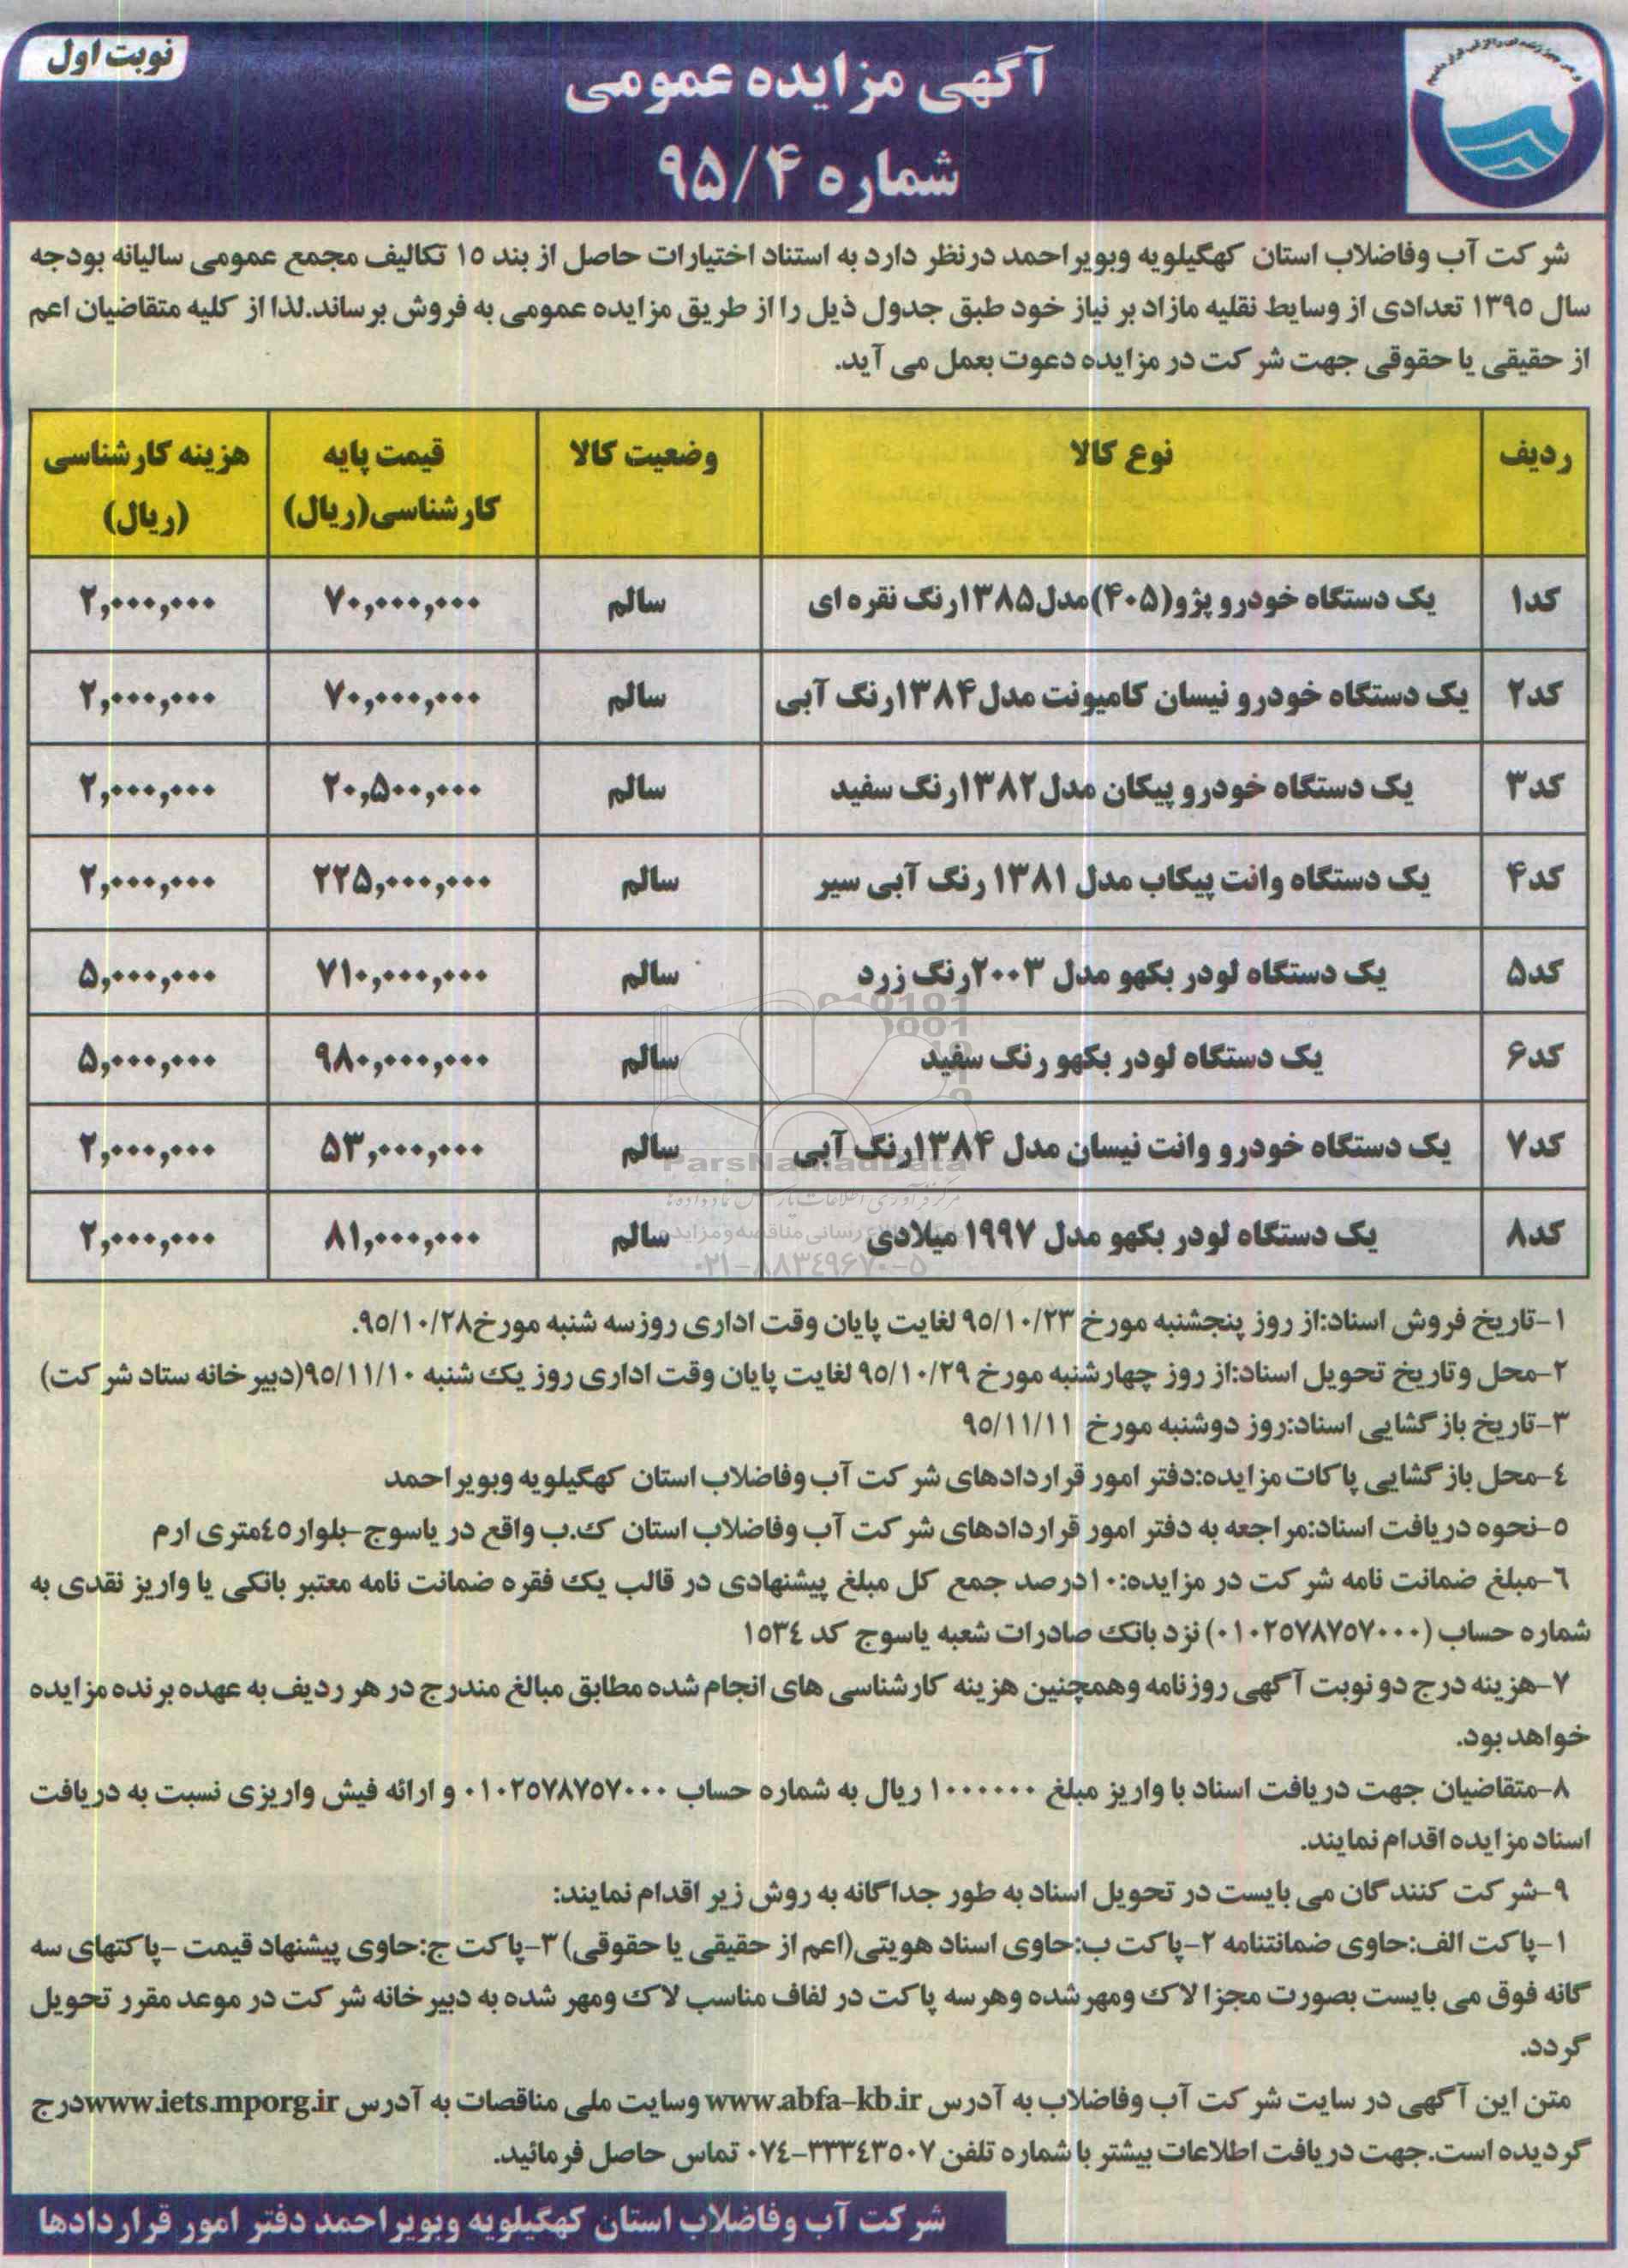 نوبت اول
آگهی مزایده عمومی
شماره ۹۵/۴
شرکت آب وفاضلاب استان کهگیلویه وبویراحمد درنظر دارد به استناد اختیارات حاصل از بند ۱۵ تکالیف مجمع عمومی سالیانه بودجه
سال ۱۳۹۵ تعدادی از وسایط نقلیه مازاد بر نیاز خود طبق جدول ذیل را از طریق مزایده عمومی به فروش برساند.لذا از کلیه متقاضیان اعم
از حقیقی یا حقوقی جهت شرکت در مزایده دعوت بعمل می آید.
ردیف نوع کالا وضعیت کالا قیمت پایه کارشناسی(ریال) هزینه کارشناسی (ریال)
کد۱ یک دستگاه خودرو پژو(۴۰۵)مدل۱۳۸۵رنگ نقره ای سالم ۷۰,۰۰۰,۰۰۰ ۲,۰۰۰,۰۰۰
کد۲ یک دستگاه خودرو نیسان کامیونت مدل۱۳۸۴رنگ آبی سالم ۷۰,۰۰۰,۰۰۰ ۲,۰۰۰,۰۰۰
کد۳ یک دستگاه خودرو پیکان مدل۱۳۸۲رنگ سفید سالم ۲۰,۵۰۰,۰۰۰ ۲,۰۰۰,۰۰۰
کد۴ یک دستگاه وانت پیکاب مدل ۱۳۸۱ رنگ آبی سیر سالم ۲۲۵,۰۰۰,۰۰۰ ۲,۰۰۰,۰۰۰
کد۵ یک دستگاه لودر بکهو مدل ۲۰۰۳رنگ زرد سالم ۷۱۰,۰۰۰,۰۰۰ ۵,۰۰۰,۰۰۰
کد۶ یک دستگاه لودر بکهو رنگ سفید سالم ۹۸۰,۰۰۰,۰۰۰ ۵,۰۰۰,۰۰۰
کد۷ یک دستگاه خودرو وانت نیسان مدل ۱۳۸۴رنگ آبی سالم ۵۳,۰۰۰,۰۰۰ ۲,۰۰۰,۰۰۰
کد۸ یک دستگاه لودر بکهو مدل ۱۹۹۷ میلادی سالم ۸۱,۰۰۰,۰۰۰ ۲,۰۰۰,۰۰۰
ParsNamadData
۰۲۱-۸۸۳۴۹۶۷۰-۵
۱-تاریخ فروش اسناد:از روز پنجشنبه مورخ ۹۵/۱۰/۲۳ لغایت پایان وقت اداری روزسه شنبه مورخ۹۵/۱۰/۲۸.
۲-محل وتاریخ تحویل اسناد:از روز چهارشنبه مورخ ۹۵/۱۰/۲۹ لغایت پایان وقت اداری روز یک شنبه ۹۵/۱۱/۱۰(دبیرخانه ستاد شرکت)
۳-تاریخ بازگشایی اسناد:روز دوشنبه مورخ ۹۵/۱۱/۱۱
٤-محل بازگشایی پاکات مزایده:دفتر امور قراردادهای شرکت آب وفاضلاب استان کهگیلویه وبویراحمد
۵-نحوه دریافت اسناد:مراجعه به دفتر امور قراردادهای شرکت آب وفاضلاب استان ک.ب واقع در یاسوج-بلوار٤۵متری ارم
٦-مبلغ ضمانت نامه شرکت در مزایده:۱۰درصد جمع کل مبلغ پیشنهادی در قالب یک فقره ضمانت نامه معتبر بانکی یا واریز نقدی به
شماره حساب (۰۱۰۲۵۷۸۷۵۷۰۰۰) نزد بانک صادرات شعبه یاسوج کد ۱۵۳٤
۷-هزینه درج دو نوبت آگهی روزنامه وهمچنین هزینه کارشناسی های انجام شده مطابق مبالغ مندرج در هر ردیف به عهده برنده مزایده
خواهد بود.
۸-متقاضیان جهت دریافت اسناد با واریز مبلغ ۱۰۰۰۰۰۰ ریال به شماره حساب ۰۱۰۲۵۷۸۷۵۷۰۰۰ و ارائه فیش واریزی نسبت به دریافت
اسناد مزایده اقدام نمایند.
۹-شرکت کنندگان می بایست در تحویل اسناد به طور جداگانه به روش زیر اقدام نمایند:
۱-پاکت الف:حاوی ضمانتنامه ۲-پاکت ب:حاوی اسناد هویتی(اعم از حقیقی یا حقوقی) ۳-پاکت ج:حاوی پیشنهاد قیمت -پاکتهای سه
گانه فوق می بایست بصورت مجزا لاک ومهر شده وهرسه پاکت در لفاف مناسب لاک ومهر شده به دبیرخانه شرکت در موعد مقرر تحویل
گردد.
متن این آگهی در سایت شرکت آب وفاضلاب به آدرس www.abfa-kb.ir وسایت ملی مناقصات به آدرس www.iets.mporg.irدرج
گردیده است.جهت دریافت اطلاعات بیشتر با شماره تلفن ۳۳۳٤۳۵۰۷-۰۷٤ تماس حاصل فرمائید.
شرکت آب وفاضلاب استان کهگیلویه وبویراحمد دفتر امور قراردادها